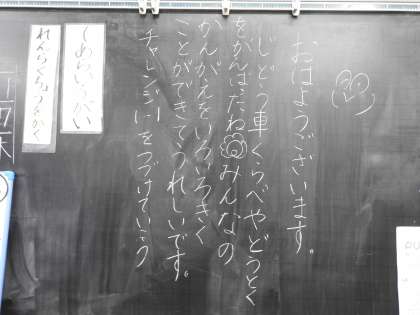 おはようございます。
じどう車くらべやどうとく
をがんばったねみんなの
かんがえをいろいろきく
ことができてうれしいです。
チャレンジーをつづけていこう
てあらいうがい
れんらくちょうをかく